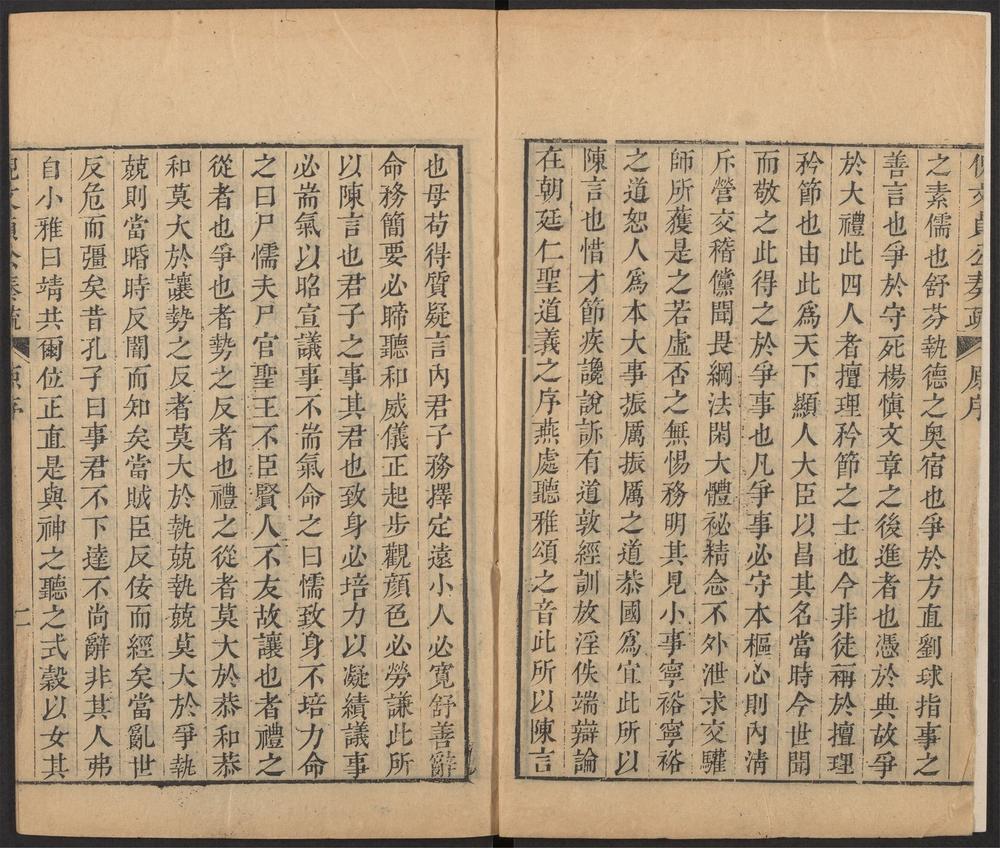 倪文貞公奏疏 原序
之素儒也舒芬執德之奧宿也爭於方直劉球指事之
善言也爭於守死楊愼文章之後進者也憑於典故爭
於大禮此四人者擅理矜節之士也今非徒兩於擅理
矜節也由此爲天下顯人大臣以昌其名當時今世聞
而敬之此得之於爭事也凡爭事必守本樞心則內淸
斥營交稽儻聞畏綱法閑大體祕精念不外泄求交驩
師所獲是之若虛否之無惕務明其見小事寧裕寧裕
之道恕人爲本大事振厲振厲之道恭國爲宜此所以
陳言也惜才節疾讒說訴有道敦經訓放淫佚端辯論
在朝廷仁聖道義之序燕處聽雅頌之音此所以陳言
也毋苟得質疑言內君子務擇定遠小人必寬舒善辭
命務簡要必諦聽和威儀正起步觀顏色必勞謙此所
以陳言也君子之事其君也致身必培力以凝績議事
必耑氣以昭宣議事不耑氣命之曰懦致身不培力命
之曰尸懦夫尸官聖王不臣賢人不友故讓也者禮之
從者也爭也者勢之反者也禮之從者莫大於恭和恭
和莫大於讓勢之反者莫大於執兢執兢莫大於爭執
兢則當㬳時反闇而知矣當賊臣反侫而經矣當亂世
反危而彊矣昔孔子曰事君不下達不尚辭非其人弗
自小雅曰靖共爾位正直是與神之聽之式穀以女其
倪文貞公奏疏 原序 二